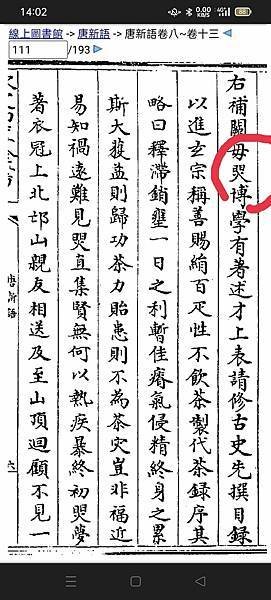 14:02
0.00 KB/S
4G
88
線上圖書館 -> 唐新語 -> 唐新語卷八~卷十三
111 /193
右補闕毋煚博學有著述才上表請修古史先撰目録
以進玄宗稱善賜絹百疋性不飲茶製代茶録序其
略曰釋滯銷壅一日之利暫佳瘠氣侵精終身之累
斯大獲益則歸功茶力貽患則不為茶灾豈非福近
易知禍逺難見煚直集賢無何以熱疾暴終初煚夢
著衣冠上北邙山親友相送及至山頂迴顧不見一
唐新語